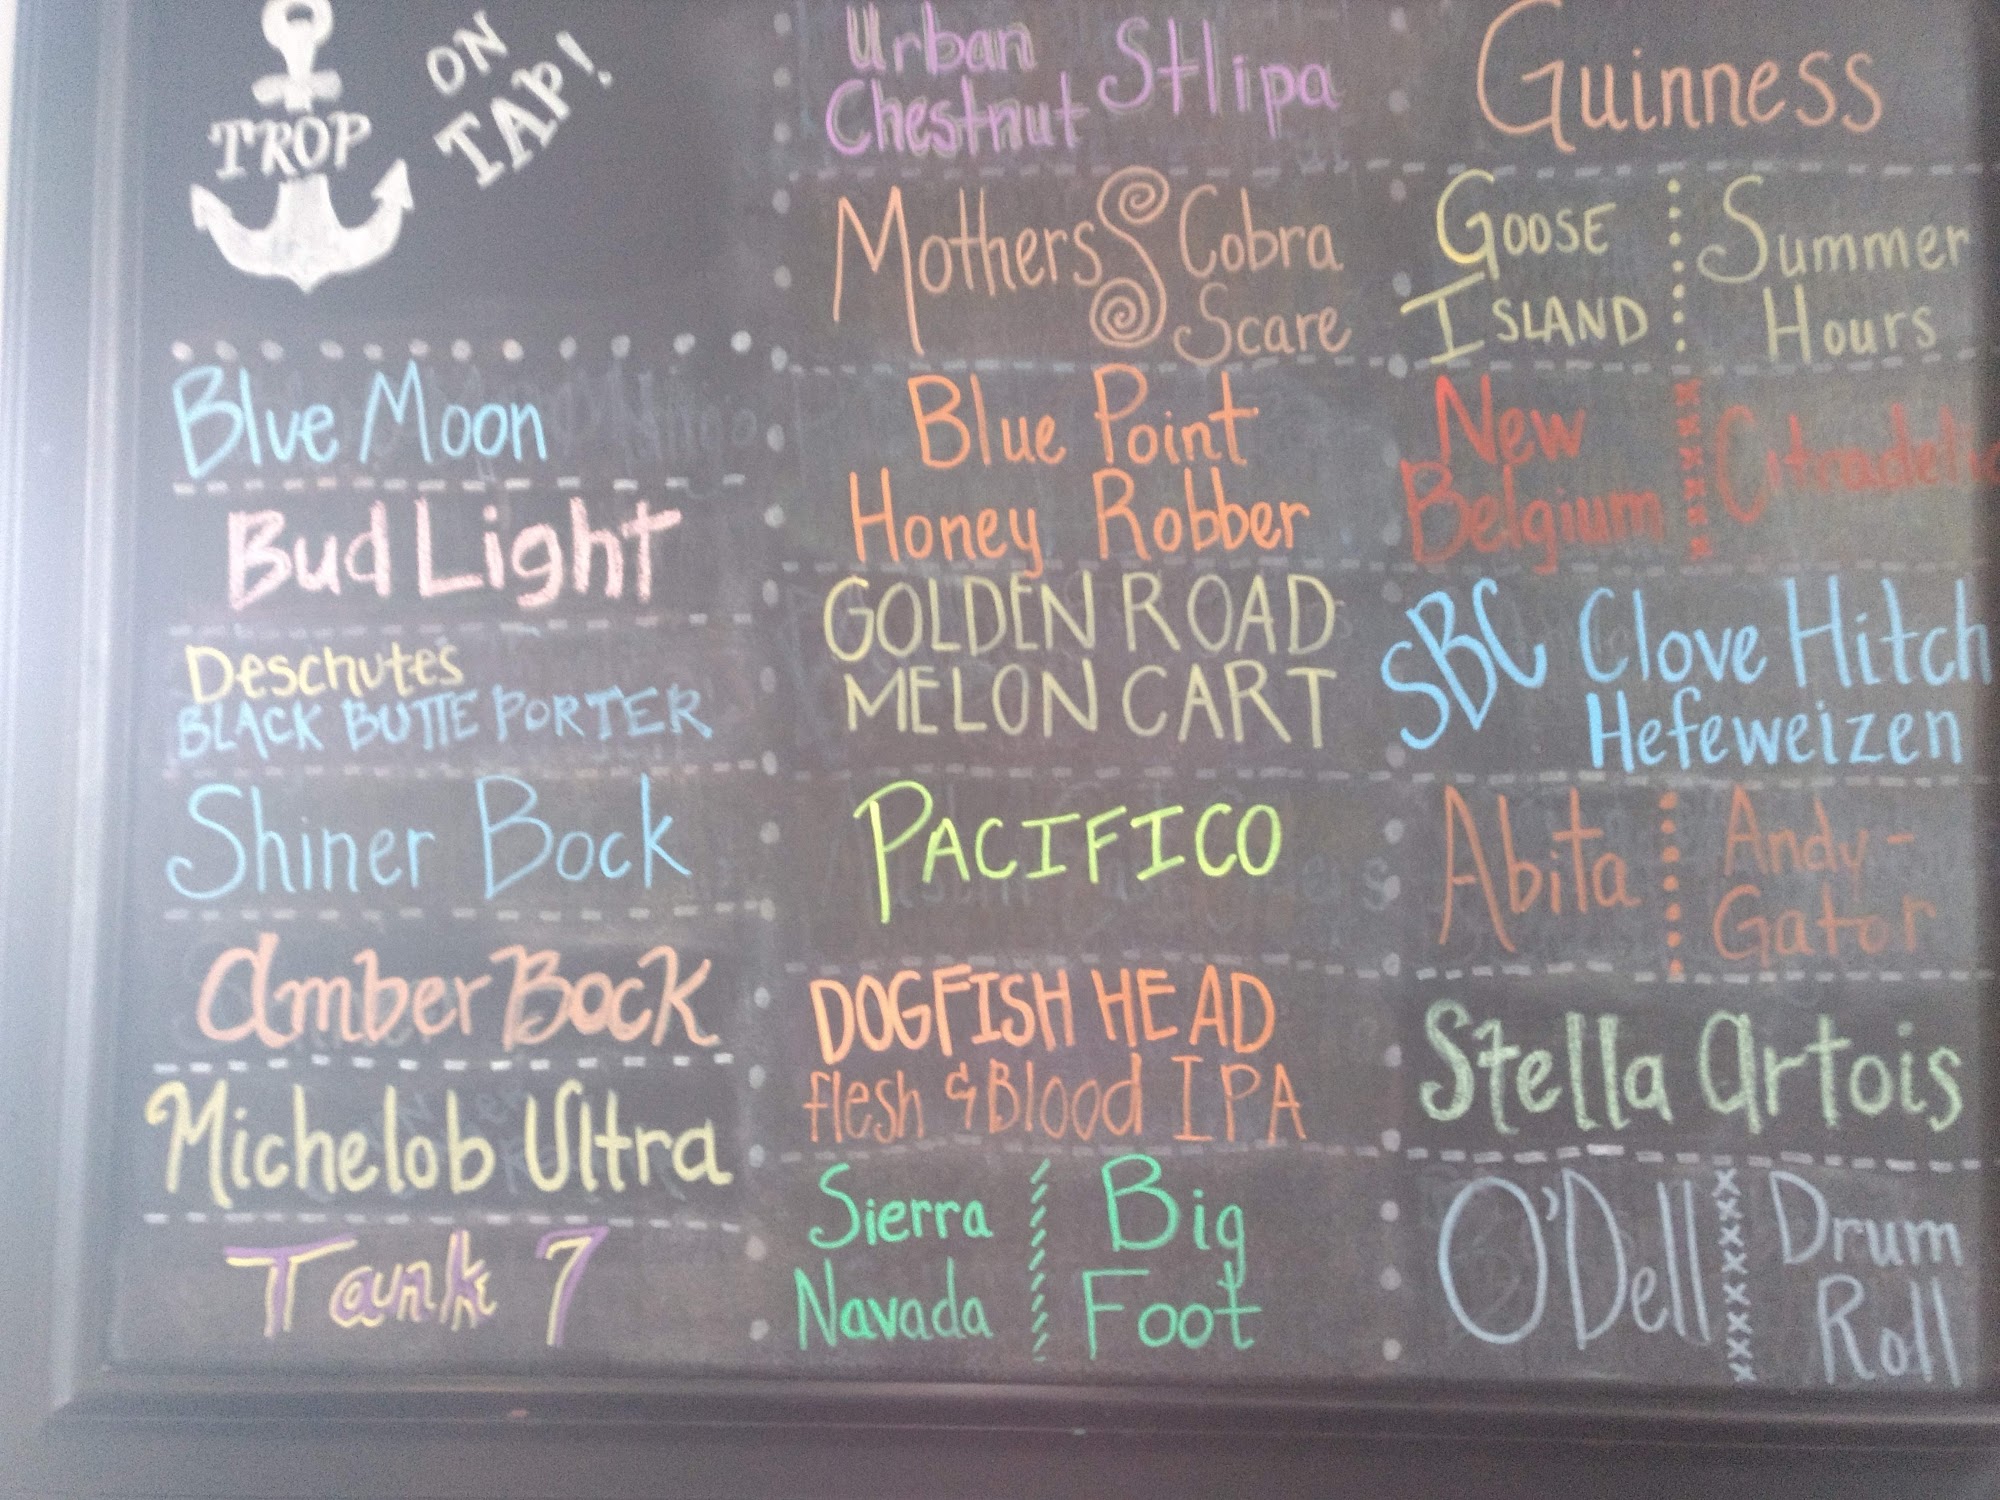 TROP
ON
TAP!
Blue Moon
Bud Light
Deschutes
BLACK BUTTE PORTER
Shiner Bock
Amber Bock
Michelob Ultra
Tank 7
Urban
Chestnut STLipa
Mothers Cobra
Scare
Blue Point
Honey Robber
GOLDEN ROAD
MELON CART
PACIFICO
DOGFISH HEAD
flesh & Blood IPA
Sierra Big
Navada Foot
Guinness
GOOSE Summer
ISLAND Hours
New
Belgium Citradelic
SBC Clove Hitch
Hefeweizen
Abita Andy-
Gator
Stella Artois
O'Dell Drum
Roll